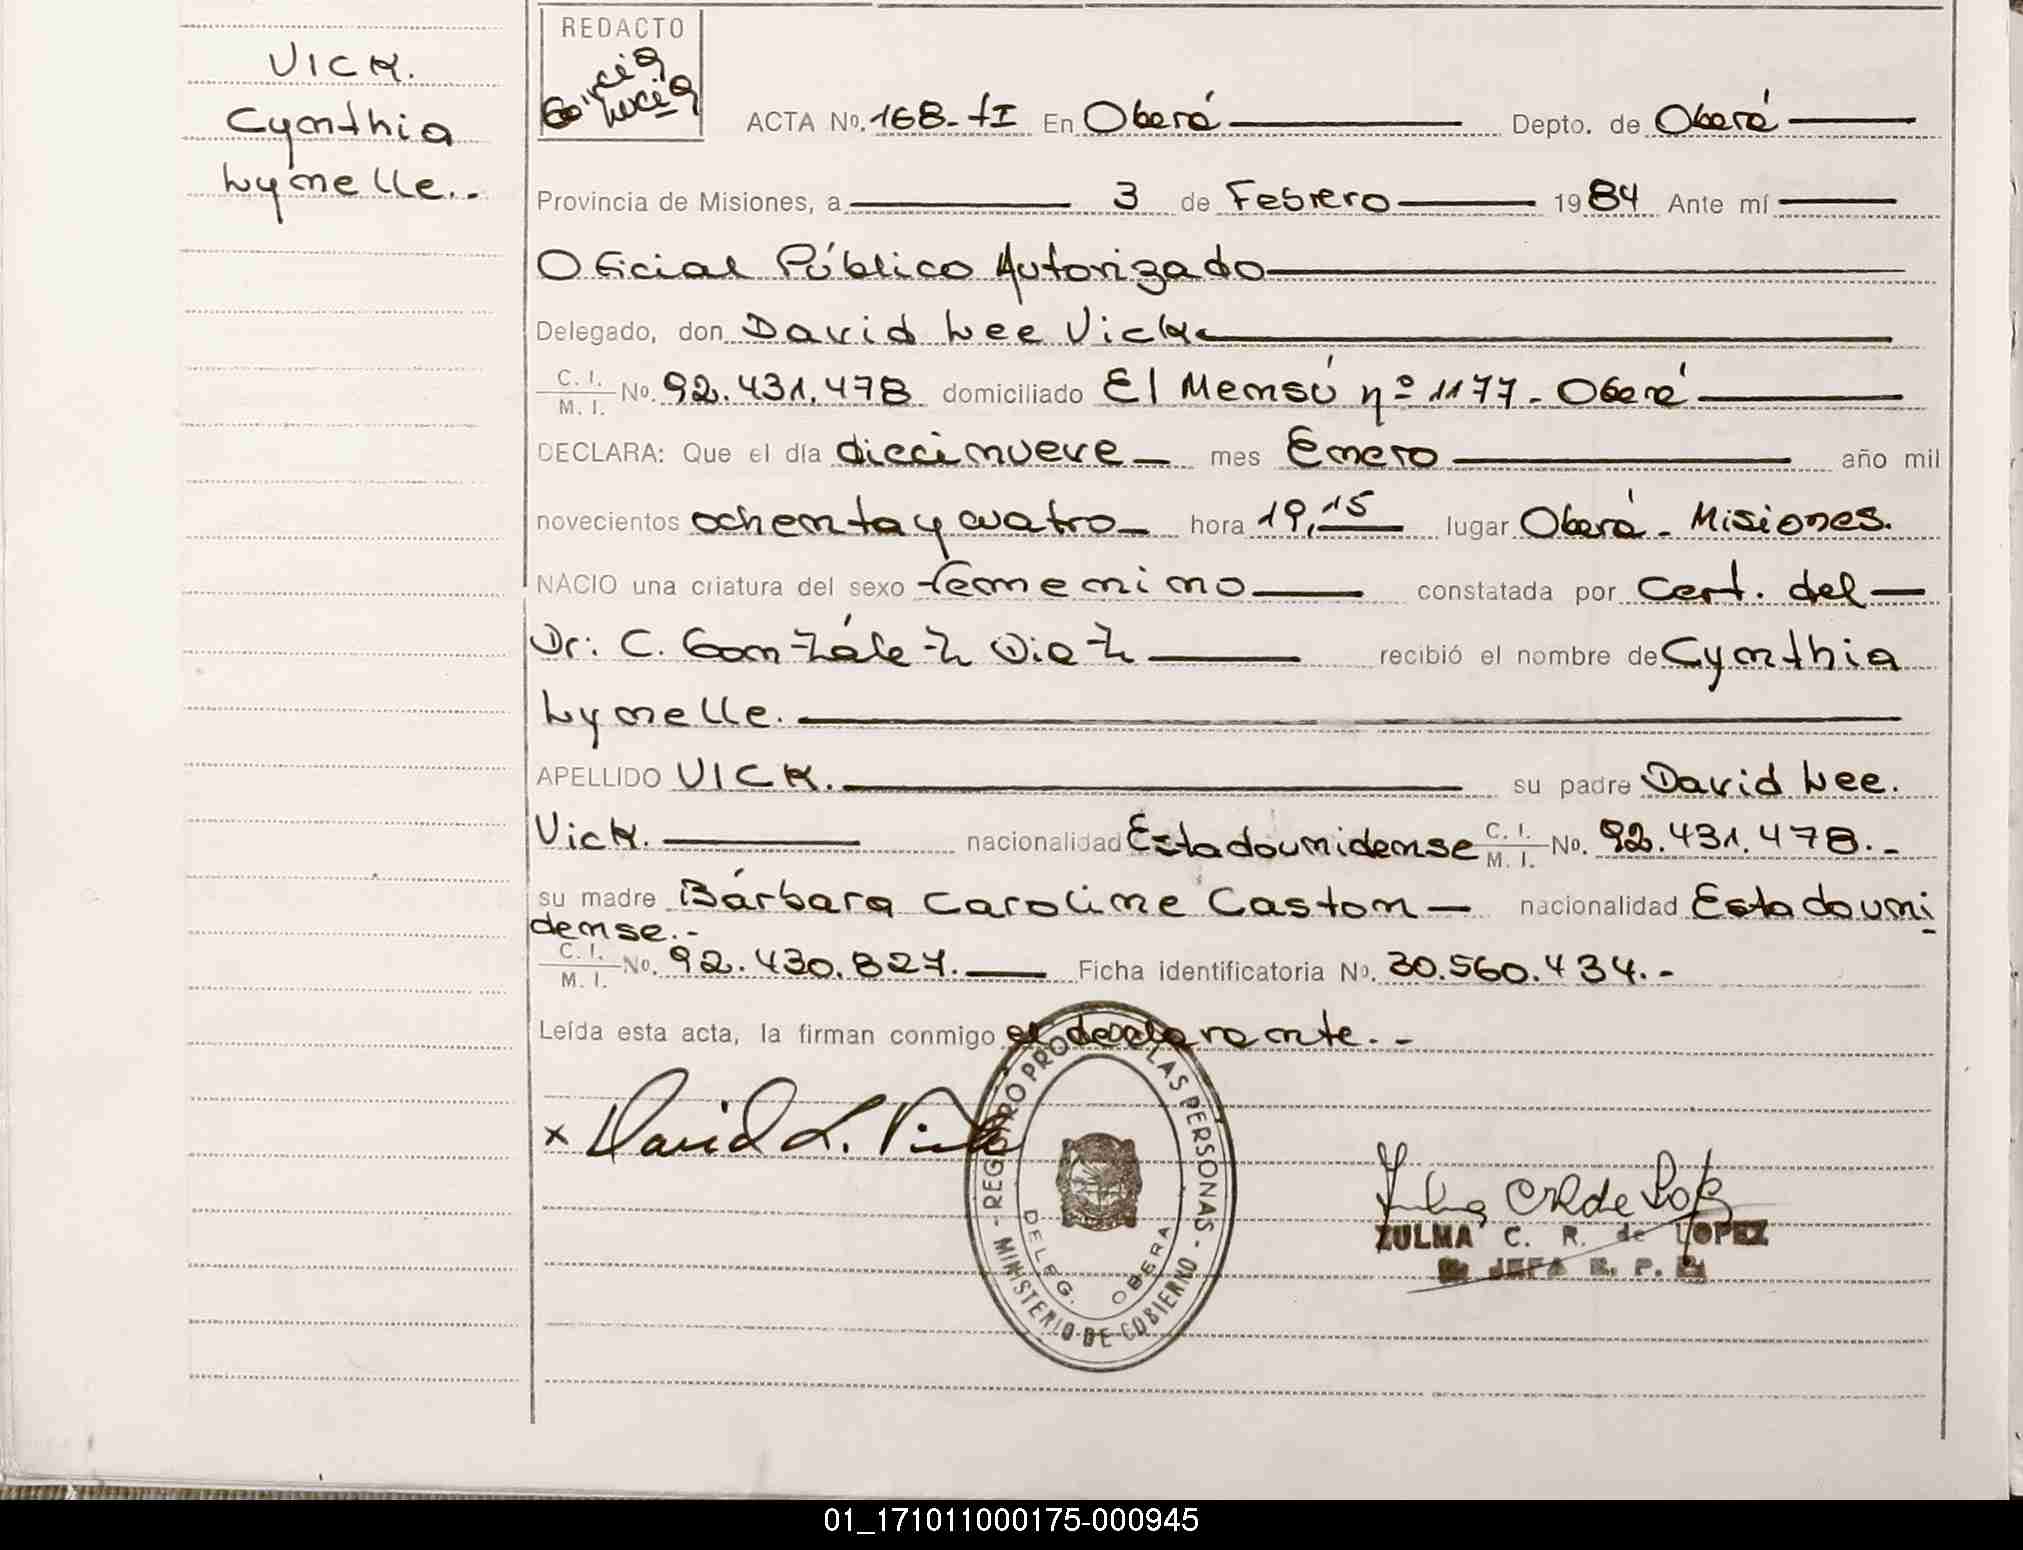 VICK.
Cynthia
Lynelle.-
REDACTO
ACTA Nº. 168-tI En Oberá Depto. de Oberá
Provincia de Misiones, a 3 de Febrero 1984 Ante mí
Oficial Público Autorizado
Delegado, don David Lee Vick
C. I. / M. I. No. 92.431.478 domiciliado El Mensú nº 1177- Oberá
DECLARA: Que el día diecinueve mes Enero año mil
novecientos ochenta y cuatro hora 19,15 lugar Oberá - Misiones.
NACIO una criatura del sexo femenino constatada por Cert. del
Dr: C. González Diaz recibió el nombre de Cynthia
Lynelle.
APELLIDO VICK. su padre David Lee.
Vick. nacionalidad Estadounidense C. I. / M. I. No. 92.431.478.-
su madre Bárbara Caroline Caston nacionalidad Estadouni
dense.-
C. I. / M. I. No. 92.430.827. Ficha identificatoria Nº. 30.560.434.-
Leída esta acta, la firman conmigo el declarante.-
x David L. Vick
REGISTRO PRO LAS PERSONAS - MINISTERIO DE GOBIERNO -
DELEG. OBERA
ZULMA C. R. de LOPEZ
JEFA R. P.
01_171011000175-000945